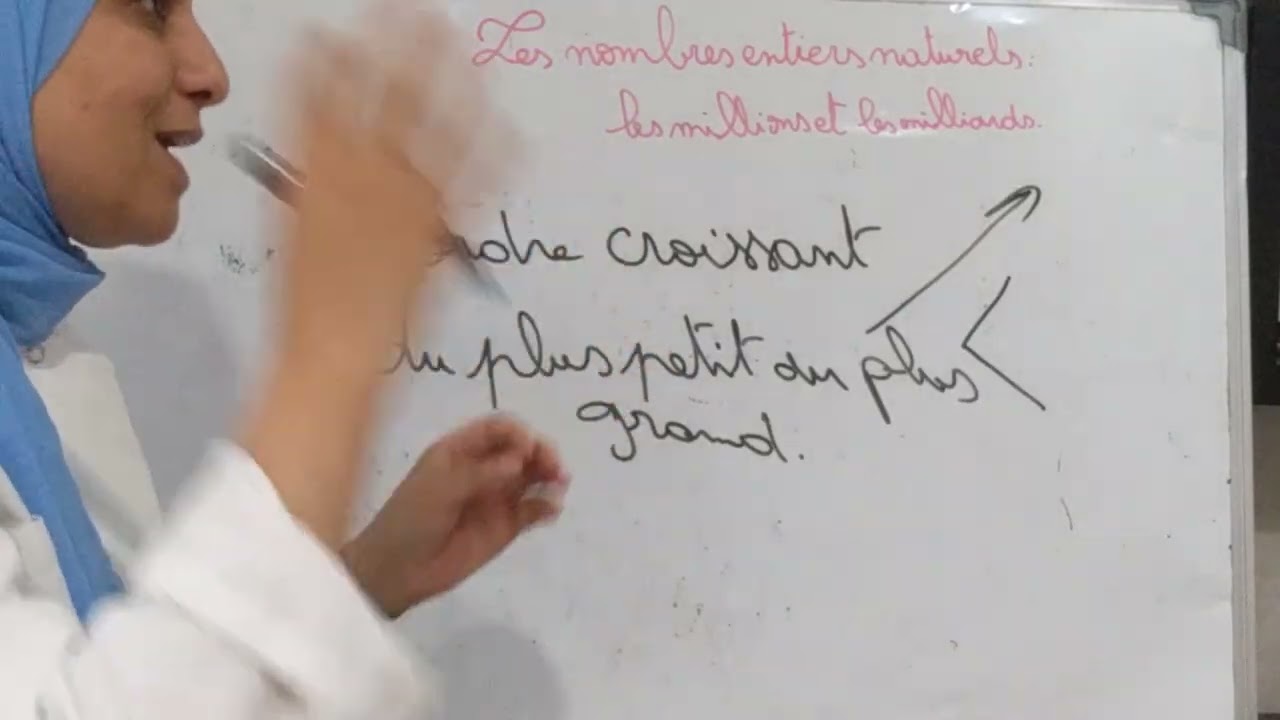 Les nombres entiers naturels:
les millions et les milliards.
ordre croissant
du plus petit au plus <
grand.